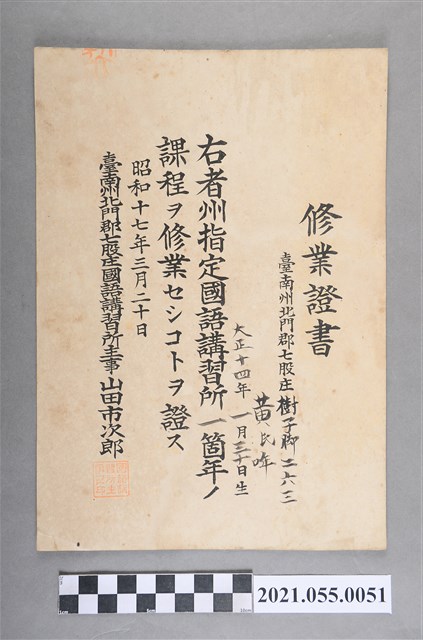 修業證書
臺南州北門郡七股庄樹子脚二六三
黄氏
大正十四年一月三十日生
右者州指定國語講習所一箇年ノ
課程ヲ修業セシコトヲ證ス
昭和十七年三月二十日
臺南州北門郡七股庄國語講習所主事山田市次郎
1cm
5cm
10cm
2021.055.0051